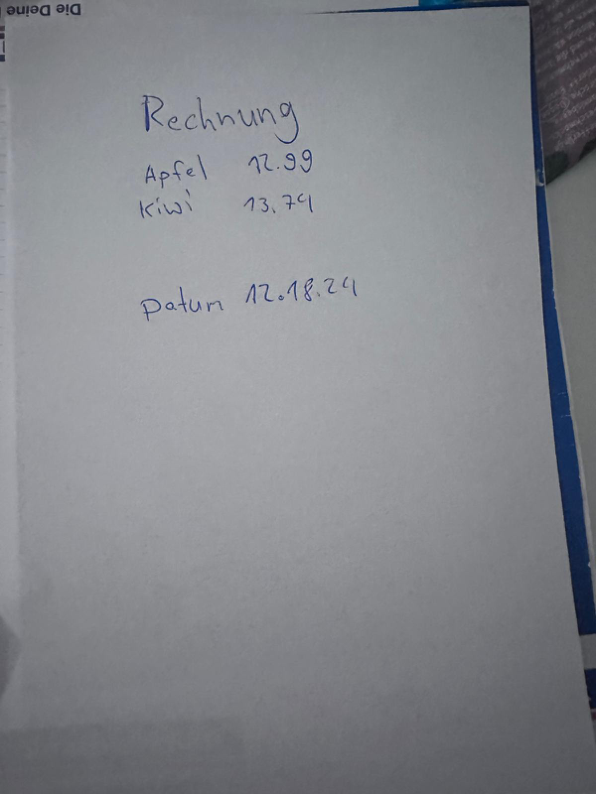 Die Deine
Rechnung
Apfel 12.99
Kiwi 13.74
Datum 12.18.24